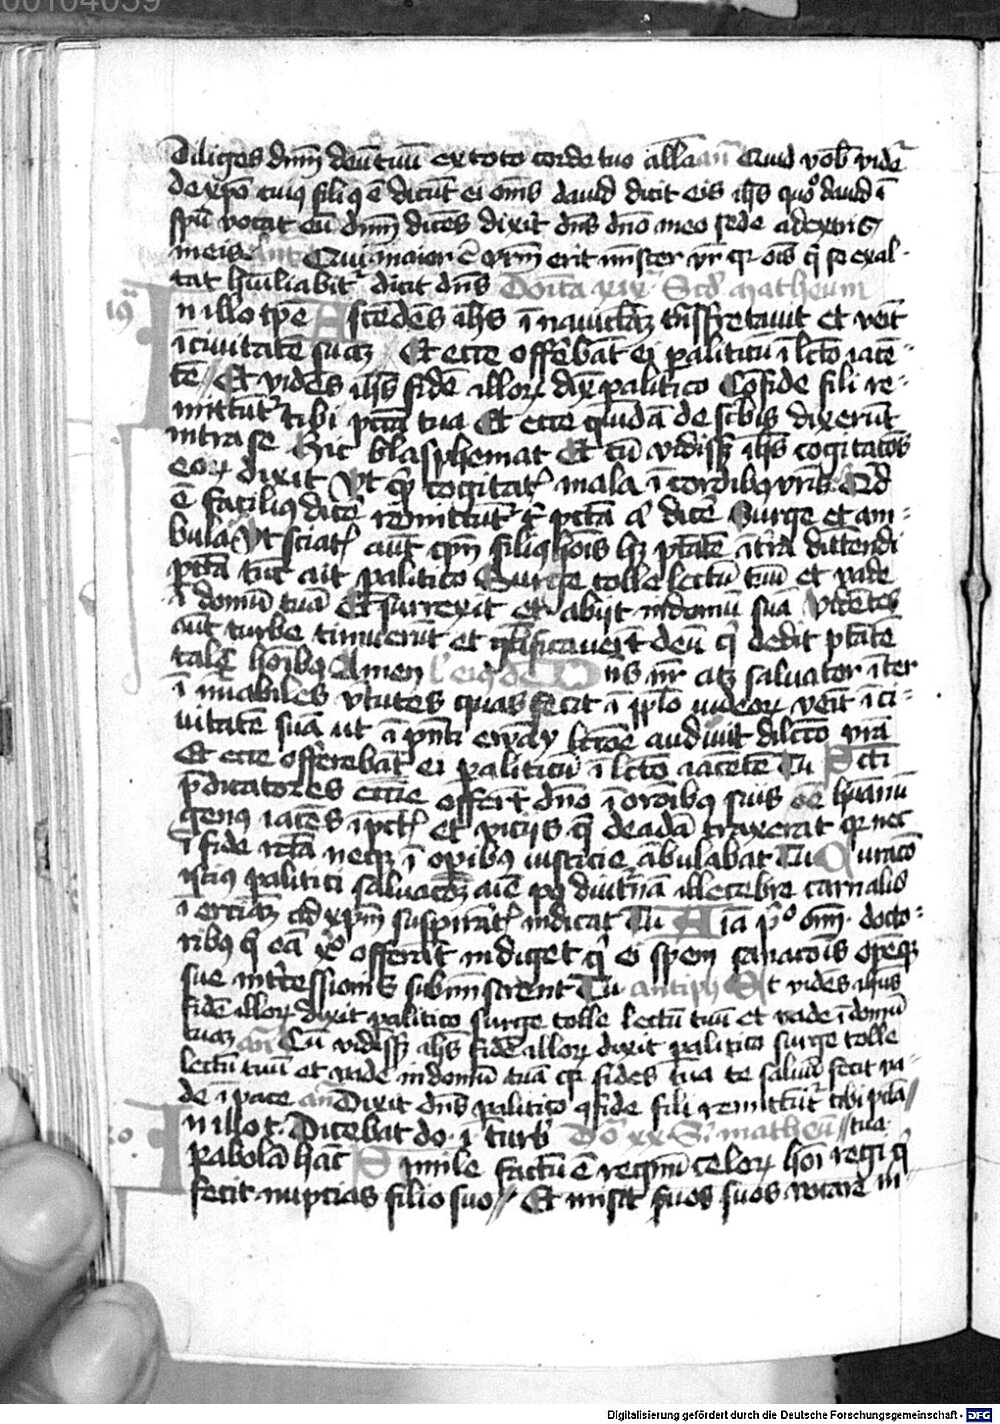 00104059
Diliges dnm deu tuu ex toto corde tuo alla an Quid vob vide
de xpo cuius fili9 e dicut ei oms david dicit eis ihs quo david i
spu vocat eu dnm dices dixit dns dno meo sede a dextris
meis ant Qui maior e vrm erit mister vr qr ois q se exal-
tat huiliabit dicit dns Doica xix Scd matheum
19 In illo tpe Ascedes ihs i navicla tnsfretavit et veit
i civitate sua Et ecce offerebat ei paliticu i lcto iace-
te Et vides ihs fide illor dix palitico Cofide fili re-
mittut tibi pcta tua Et ecce quida de scbis dixerut
intra se Hic blasphemat Et cu vidiss ihs cogitatoes
eor dixit Vt qr cogitat mala i cordibus vris Qd
e facilius dice remittut t pcta a dice Surge et am-
bula Vt sciat aut qm filius hois hz ptate i tra dittendi
pcta tuc ait palitico Surge tolle lectu tuu et vade
i domu tua Et surrexit et abijt in domu sua Videtes
aut turbe timuerut et gtificaverut deu q dedit ptate
tale hoibus Amen Dns nr atz salvator iter
i nuabiles vtutes quas fecit i pplo iudeor veit i ci-
vitate sua ut i pnti ewa lctoe audivit dilcto vra
Et ecce offerebat ei paliticu i lcto iacete Tu Scti
pdicatores eccie offert dno i ordibus suis oe huanu
genus iaces i pct et vicijs q de ada traxerat qr nec
i fide rcta neqz i opibus iusticie abulabat Tu Quraco
istius palitici salvacoz aie pq diutna illecebre carnalis
i erciaz ad xpm suspirat indicat Tu Aia po om docto-
ribus q ea xo offerat indiget q ei spem sanacois opeqz
sue intcessionis subministrent Tu antiph Et vides ihus
fide illor dixit palitico surge tolle lectu tuu et vade i domu
tuaz an Cu vidiss ihs fide illor dixit palitico surge tolle
lectu tuu et vade in domu tua qr fides tua te salvu fecit va-
de i pace an Dixit dns palitico cfide fili remittut tibi pcta
20 In illo t. Dicebat do i turb Do xx S matheu // tua
pabola hac Simile factu e regnu celor hoi regi q
fecit nuptias filio suo // Et misit suos suos vocare in-
Digitalisierung gefördert durch die Deutsche Forschungsgemeinschaft - DFG